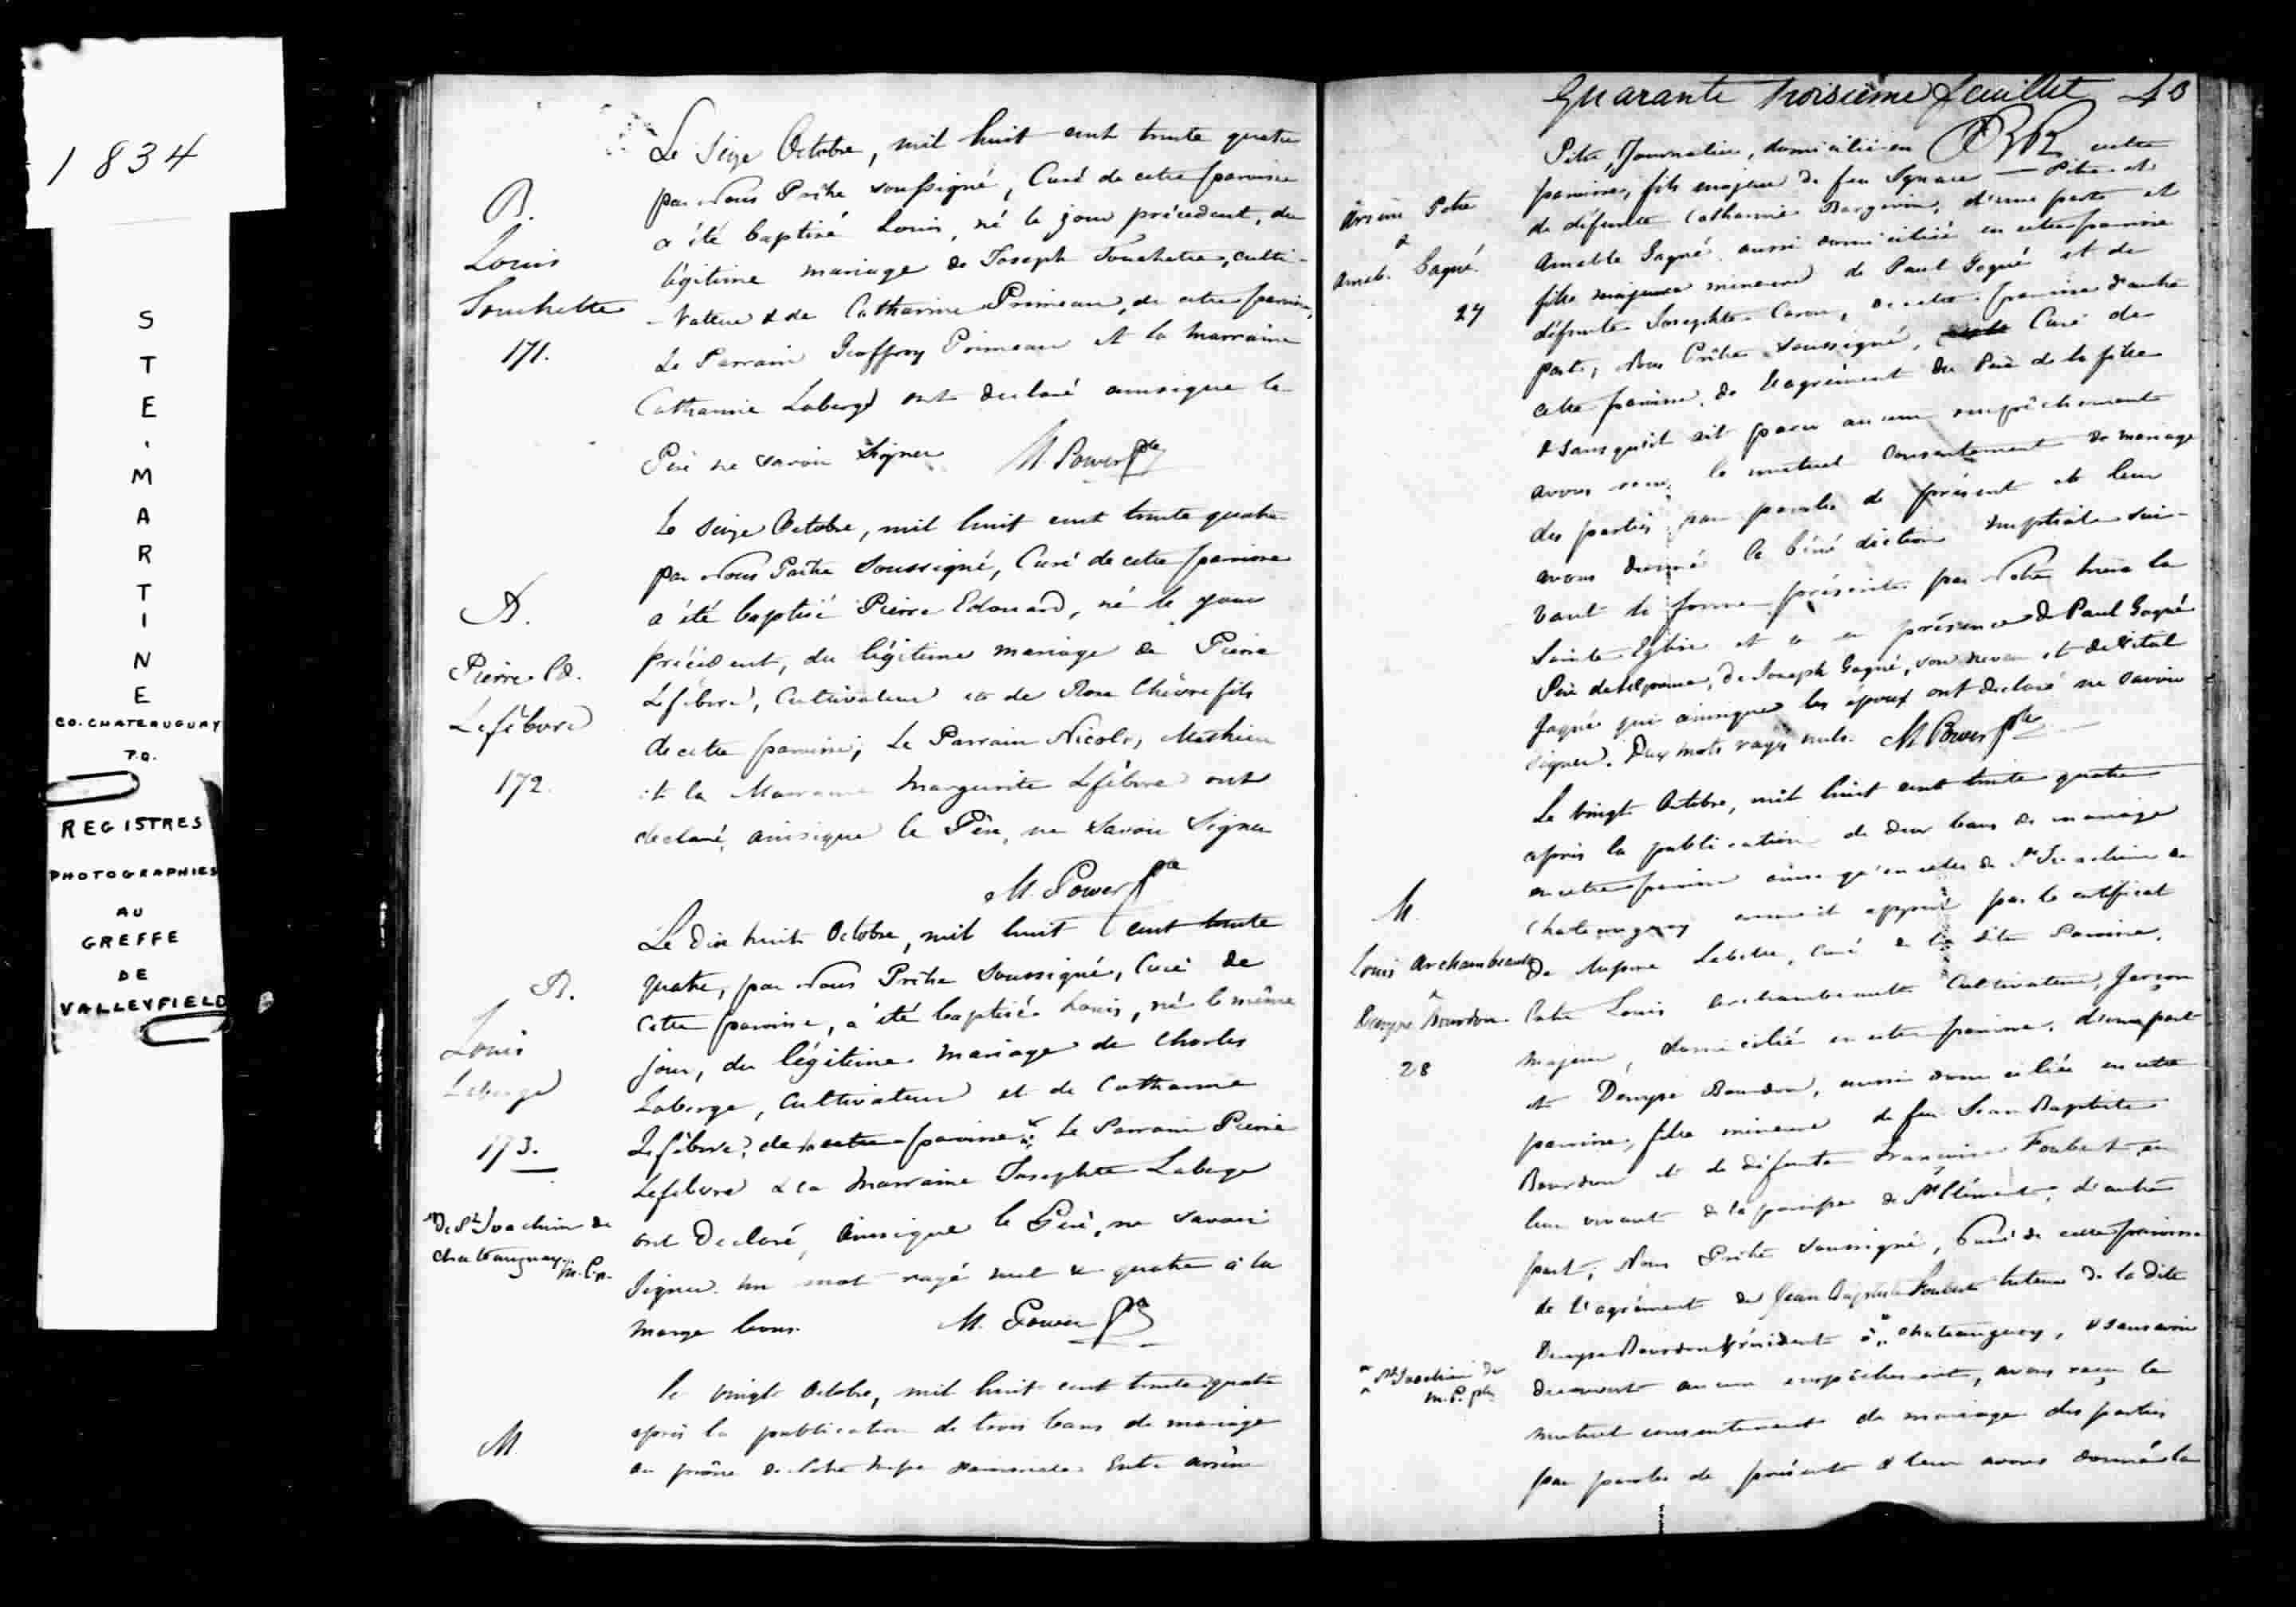 1834
S
T
E
.
M
A
R
T
I
N
E
CO. CHATEAUGUAY
P.Q.
REGISTRES
PHOTOGRAPHIES
AU
GREFFE
DE
VALLEYFIELD
Le Seize Octobre, mil huit cent trente quatre
par Nous Prêtre soussigné, Curé de cette paroisse
B.
a été baptisé Louis, né le jour précédent, du
Louis
légitime mariage de Joseph Touchette, culti-
Touchette
-vateur & de Catharine Primeau, de cette paroisse,
171.
Le Parrain Geoffroy Primeau et la Marraine
Catharine Laberge ont déclaré ainsique le
Père ne savoir signer M. Power Ptre
Le seize Octobre, mil huit cent trente quatre
par Nous Prêtre Soussigné, Curé de cette paroisse
B.
a été baptisé Pierre Edouard, né le jour
Pierre Ed.
précédent, du légitime mariage de Pierre
Lefébvre
Lefébvre, Cultivateur et de Rose Chèvrefils
de cette paroisse; Le Parrain Nicolas Mathieu
172.
et la Marraine Marguerite Lefébvre ont
déclaré, ainsique le Père, ne savoir Signer
M. Power Ptre
Le Dix huit Octobre, mil huit cent trente
B.
quatre, par Nous Prêtre Soussigné, Curé de
cette paroisse, a été baptisé Louis, né le même
Louis
jour, du légitime mariage de Charles
Laberge
Laberge, Cultivateur et de Catharine
173.
Lefébvre, de cette paroisse; Le Parrain Pierre
Lefebvre & la Marraine Josephte Laberge
De St Joachim de
Chateauguay. M.P.p.
ont Declaré, ainsique le Père, ne savoir
Signer. Un mot rayé nul & quatre à la
marge bons. M. Power Ptre
Le vingt Octobre, mil huit cent trente quatre
M
après la publication de trois bans de mariage
au prône de Notre Messe Paroissiale Entre Arsène
Quarante troisième feuillet 43
Pitre, Journalier, domicilié en cette
Arsène Pitre
paroisse, fils majeur de feu Ignace — Pitre et
&
de défunte Catharine Bargevin, d'une part et
Amab. Gagné.
Amable Gagné aussi domiciliée en cette paroisse
27
fille majeure mineure de Paul Gagné et de
défunte Josephte Caron, de cette paroisse d'autre
part, Nous Prêtre Soussigné, Curé de
cette paroisse, de l'agrément du Père de la fille
& sans qu'il ait paru aucun empêchement
avons reçu le mutuel consentement de mariage
des parties par paroles de présent et leur
avons donné la bénédiction nuptiale sui-
vant la forme présente par Notre mère la
Sainte Eglise et ce en présence de Paul Gagné
Père de l'épouse, de Joseph Gagné, son neveu et de Vital
Gagné qui ainsique les époux ont déclaré ne savoir
signer. Deux mots rayés nuls. M. Power Ptre
Le vingt Octobre, mil huit cent trente quatre
après la publication de deux bans de mariage
en cette paroisse ainsi qu'en celle de St Joachim de
M.
Chateauguay comme il appert par le certificat
Louis Archambeault
de Messire Labelle, Curé de la dite Paroisse,
&
Denyse Bourdon
Entre Louis Archambeault Cultivateur, Garçon
28
majeur, domicilié en cette paroisse, d'une part
et Denyse Bourdon, aussi domiciliée en cette
paroisse, fille mineure de feu Jean Baptiste
Bourdon et de défunte Françoise Foubert en
leur vivant de la paroisse de St Clément, d'autre
part; Nous Prêtre soussigné, Curé de cette paroisse
de l'agrément de Jean Baptiste Foubert tuteur de la dite
Denyse Bourdon & résident à Chateauguay, & sans avoir
St Joachim de
M.P. ptre
découvert aucun empêchement, avons reçu le
mutuel consentement de mariage des parties
par paroles de présent & leur avons donné la